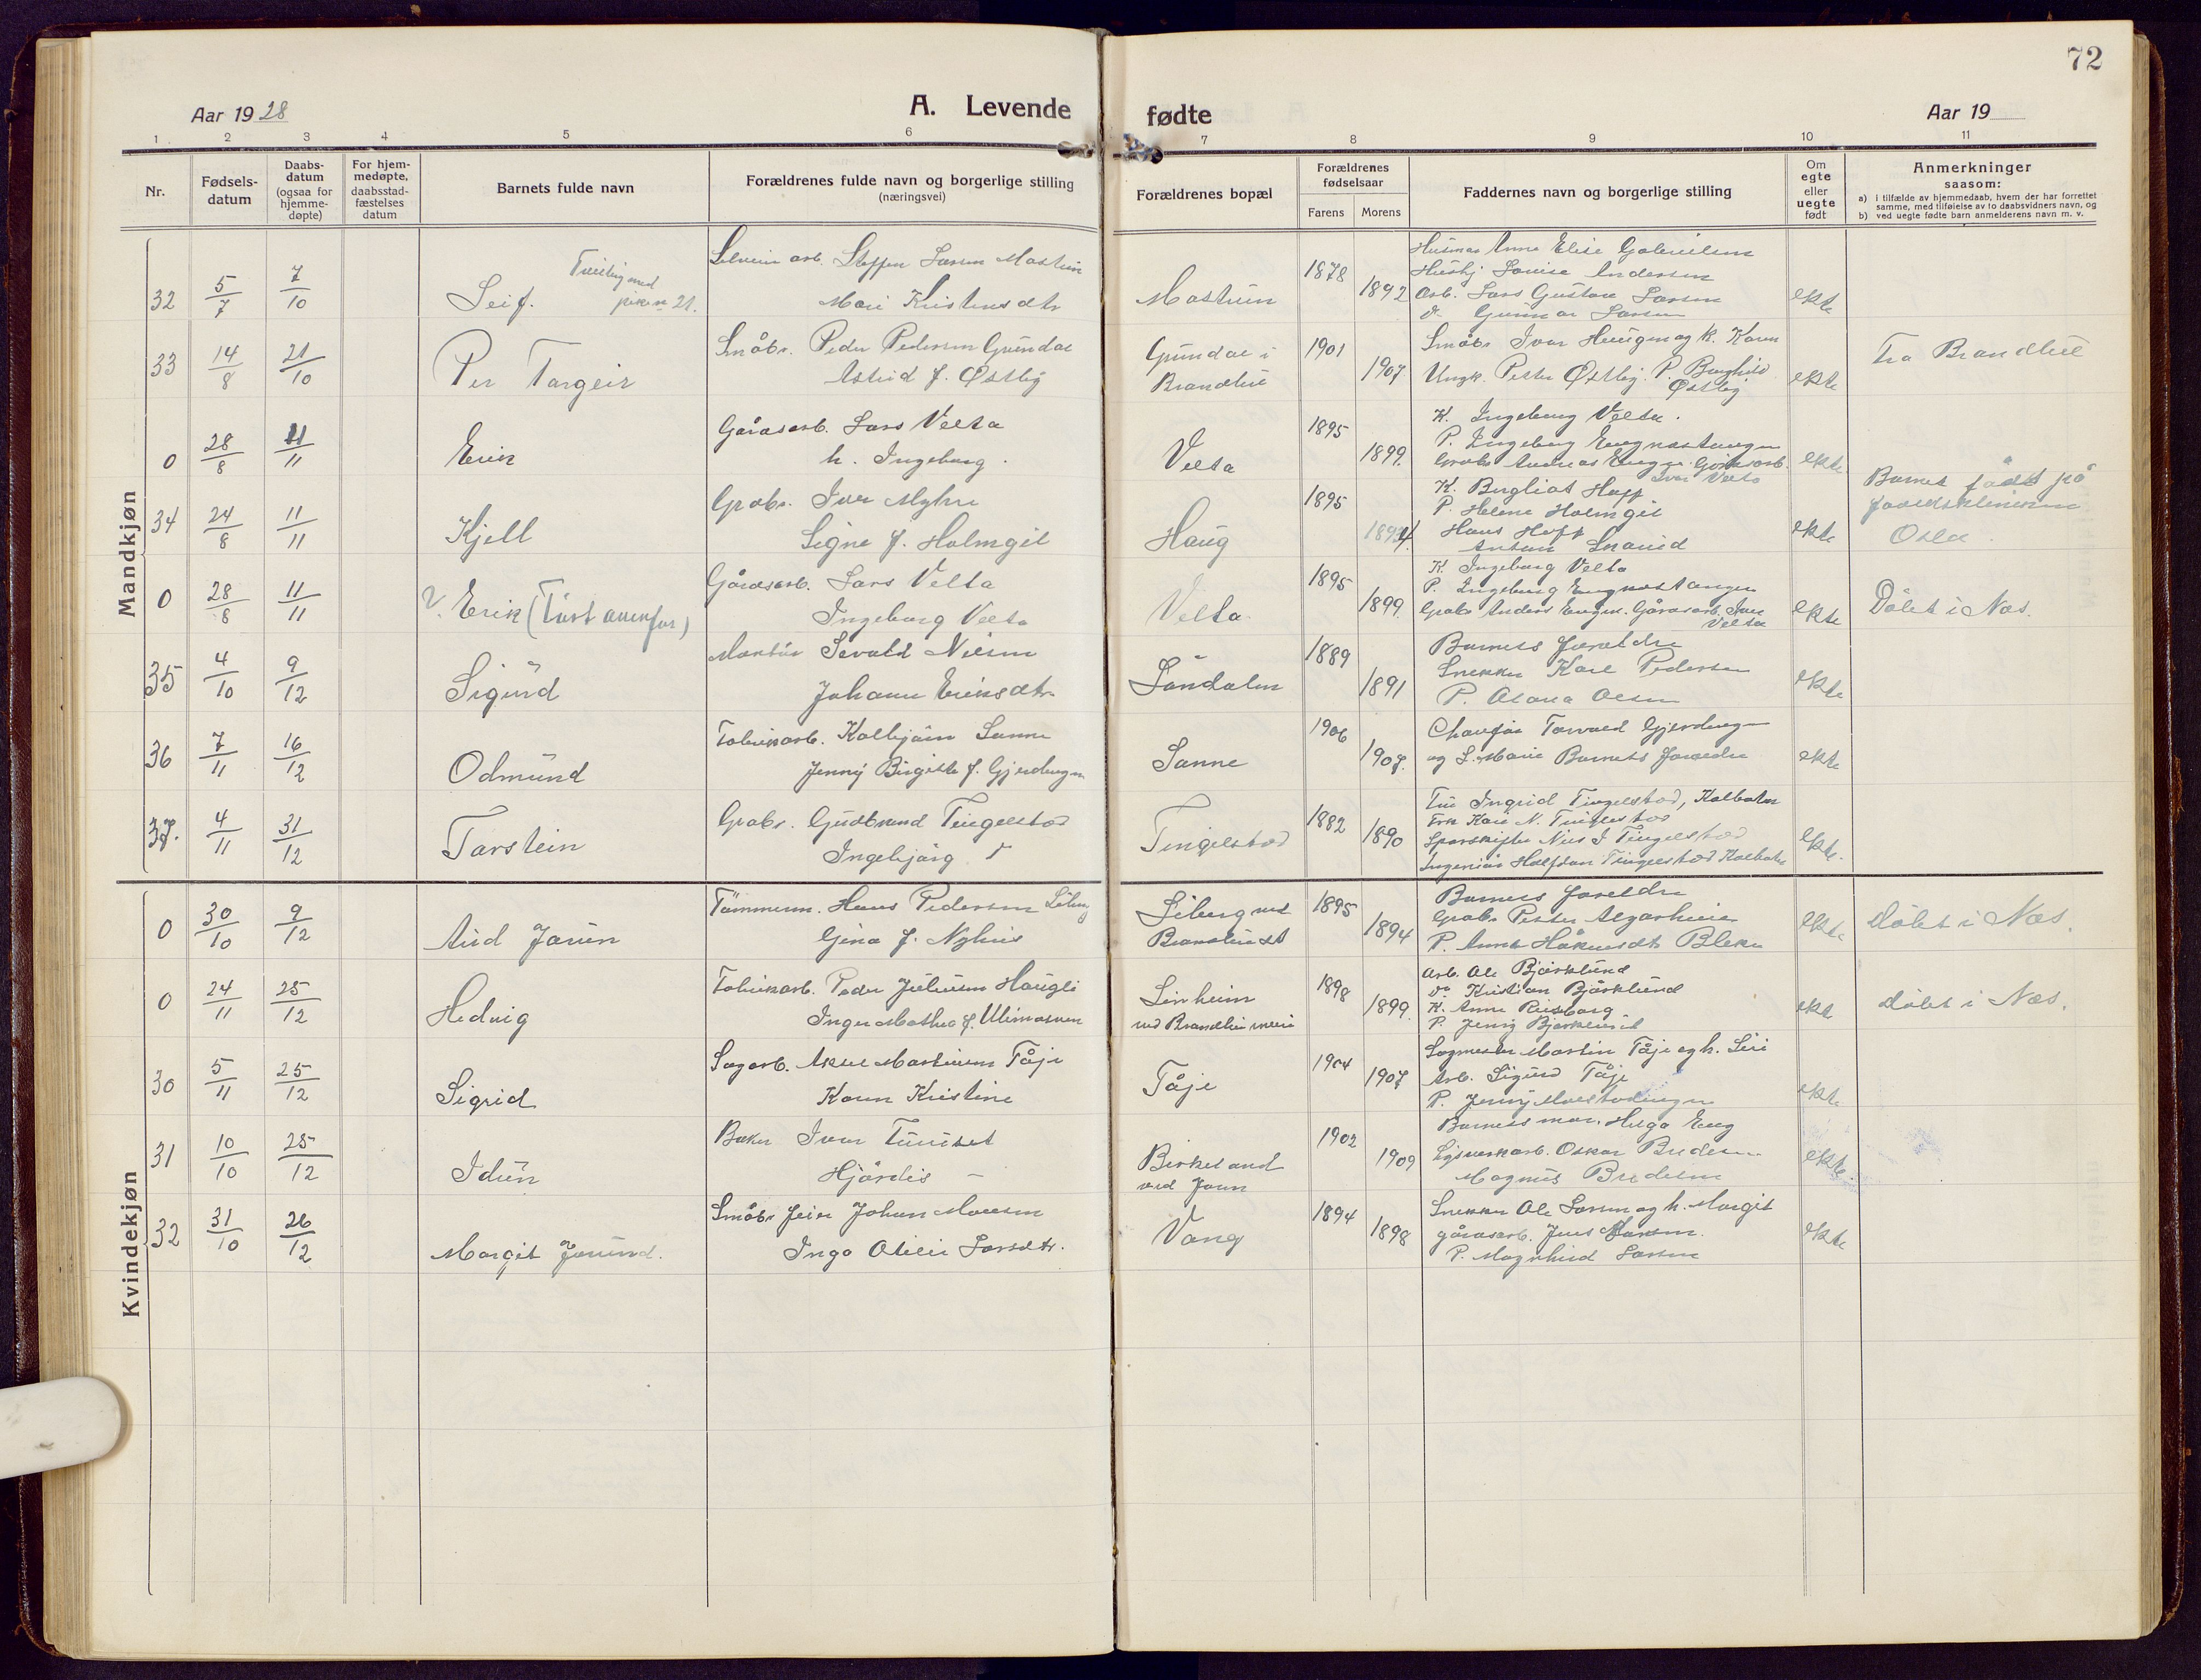 72
Aar 1928
A. Levende
fødte
Aar 19
1 2 3 4 5 6 7 8 9 10 11
Nr.
Fødsels-
datum
Daabs-
datum
(ogsaa for
hjemme-
døpte)
For hjem-
medøpte,
daabsstad-
fæstelses
datum
Barnets fulde navn
Forældrenes fulde navn og borgerlige stilling
(næringsvei)
Forældrenes bopæl
Forældrenes
fødselsaar
Farens Morens
Faddernes navn og borgerlige stilling
Om
egte
eller
uegte
født
Anmerkninger
saasom:
a) i tilfælde av hjemmedaab, hvem der har forrettet
samme, med tilføielse av to daabsvidners navn, og
b) ved uegte fødte barn anmelderens navn m. v.
Mandkjøn
32 5/7 7/10 Leif. Tvilling med piken 21.
arb. Steffen Larsen
Mari Kristensdtr
1878 1892
Anne Elise Gabrielsen
Louise Andersen
Arb. Lars Gustav Larsen
Gunnar Larsen
ekte
33 14/8 21/10 Per Targeir
Småbr. Peder Pedersen Grindal
Astrid f. Østby
Grindal i
1901 1907
Småbr Ivar Haugen og k. Karen
Ungk. Petter Østby. P. Borghild
Østby
ekte
Fra
0 28/8 11/11 Erik
Gårdsarb. Lars Velta
h. Ingeborg.
Velta
1895 1899.
K. Ingeborg Velta.
P. Ingeborg Engnæstangen
Gårdsarb.
Ivar Velta
ekte
34 24/8 11/11 Kjell
Grabr. Iver Myhre
Signe f. Holmgil
Haug
1895
Hoff
P. Helene Holmgil
Hans Hoff
Anton
ekte
Barnet født på
Oslo.
0 28/8 11/11 V. Erik (
Gårdsarb. Lars Velta
Ingeborg Velta
Velta.
1895 1899.
K. Ingeborg Velta
P. Ingeborg Engnæstangen
Anders Engen. Gårdsarb. Ivar
Velta
ekte
Døbt i Næs.
35 4/10 9/12 Sigurd
Montør Sevald Nilsen
Johanne Eriksdtr.
1889 1891
Barnets foreldre
Snekker Karl Pedersen
P. Olsen
ekte
36 7/11 16/12 Odmund
Fabrikarb. Kolbjørn Sanne
Jenny Birgitte f. Gjerdingen
Sanne
1906 1907.
Chauffør Torvald Gjerdingen
og L. Marie Barnets foreldre
ekte
37. 4/11 31/12 Torstein
Grabr. Gudbrand Tingelstad
Ingebjørg
Tingelstad
1882 1890
Ingrid Tingelstad, Kolbotn
Frk Kari N. Tingelstad
Nils I Tingelstad
Ingeniør Halfdan Tingelstad Kolbotn
ekte.
Kvindekjøn
0 30/10 9/12 Aud Jorun
Tømmerm. Hans Pedersen
Gina f. Nyhus
1895 1894
Barnets foreldre
Grabr Petter
P. Anna Håkensdtr
ekte
døbt i Næs.
0 24/11 25/12 Hedvig
Fabrikarb. Peder Juliusen Haugli
Inger Mathea f.
1898 1899.
Arb. Ole Bjørklund
do Kristian Bjørklund
K. Anna
P. Jenny Bjørklund
ekte
døbt i Næs.
30 5/11 25/12 Sigrid
Sagarb. Aksel Martinsen Tåje
Karen Kristine
Tåje
1904 1907
Sagmester Martin Tåje og h. Siri
Arb. Sigurd Tåje
P. Jenny
ekte
31 10/10 25/12 Idun
Baker Ivar
Hjørdis —
Birkeland
ved
1902 1909
Barnets mor, Helga Eng
Oskar Bredesen
Magnus Bredesen
ekte.
32 31/10 26/12 Margit Jorund.
Småbr Johan
Inga Otilie Larsdtr.
Vang
1894 1898
Snekker Ole Larsen og h. Margit
gårdsarb. Jens Larsen.
P. Magnhild Larsen
ekte